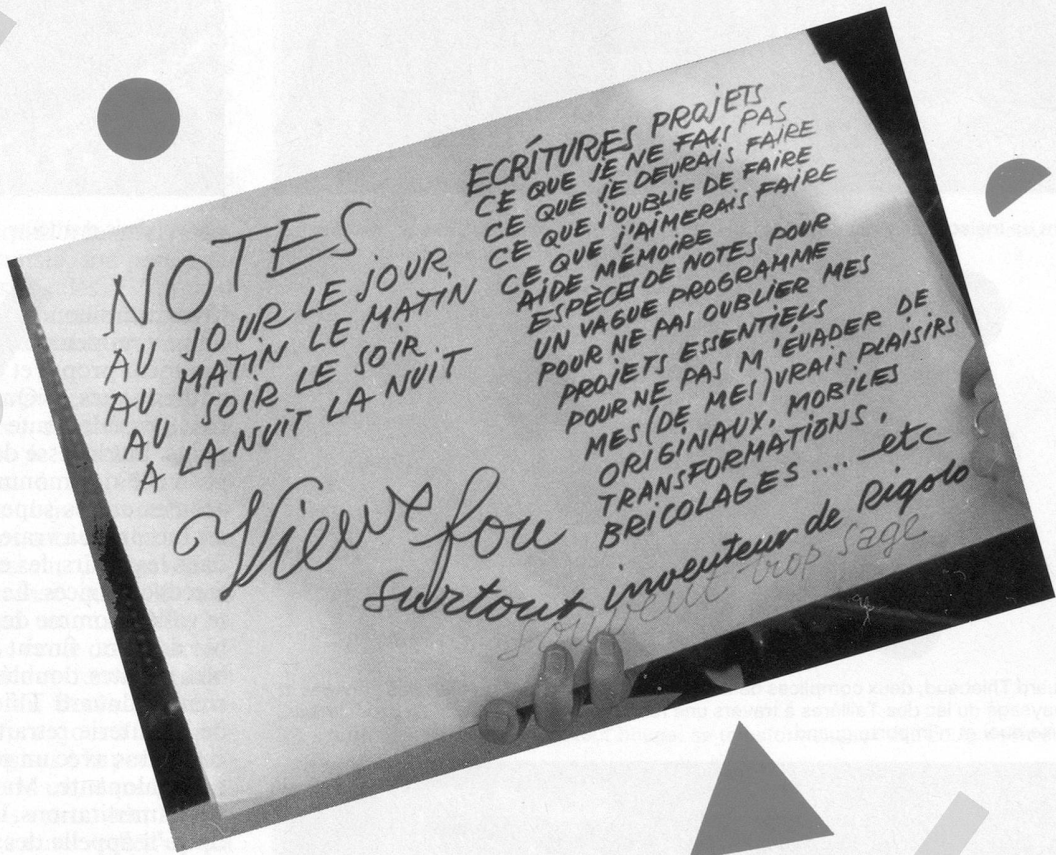 NOTES
AU JOUR LE JOUR
AU MATIN LE MATIN
AU SOIR LE SOIR
A LA NUIT LA NUIT
ECRITURES PROJETS
CE QUE JE NE FAIS PAS
CE QUE JE DEVRAIS FAIRE
CE QUE J'OUBLIE DE FAIRE
CE QUE J'AIMERAIS FAIRE
AIDE MÉMOIRE
ESPÈCES DE NOTES POUR
UN VAGUE PROGRAMME
POUR NE PAS OUBLIER MES
PROJETS ESSENTIELS
POUR NE PAS M'ÉVADER DE
MES (DE MES) VRAIS PLAISIRS
ORIGINAUX, MOBILES
TRANSFORMATIONS,
BRICOLAGES .... etc
Vieux fou
surtout inventeur de Rigolo
souvent trop sage